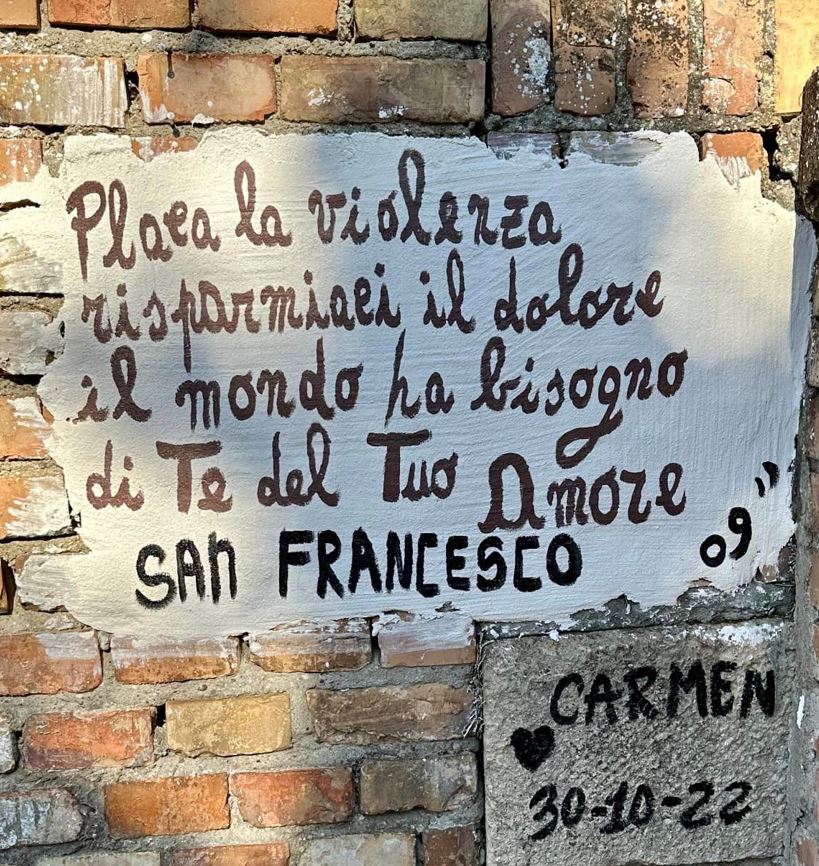 Placa la violenza
risparmiaci il dolore
il mondo ha bisogno
di Te del Tuo Amore
SAN FRANCESCO
09"
CARMEN
♥
30-10-22